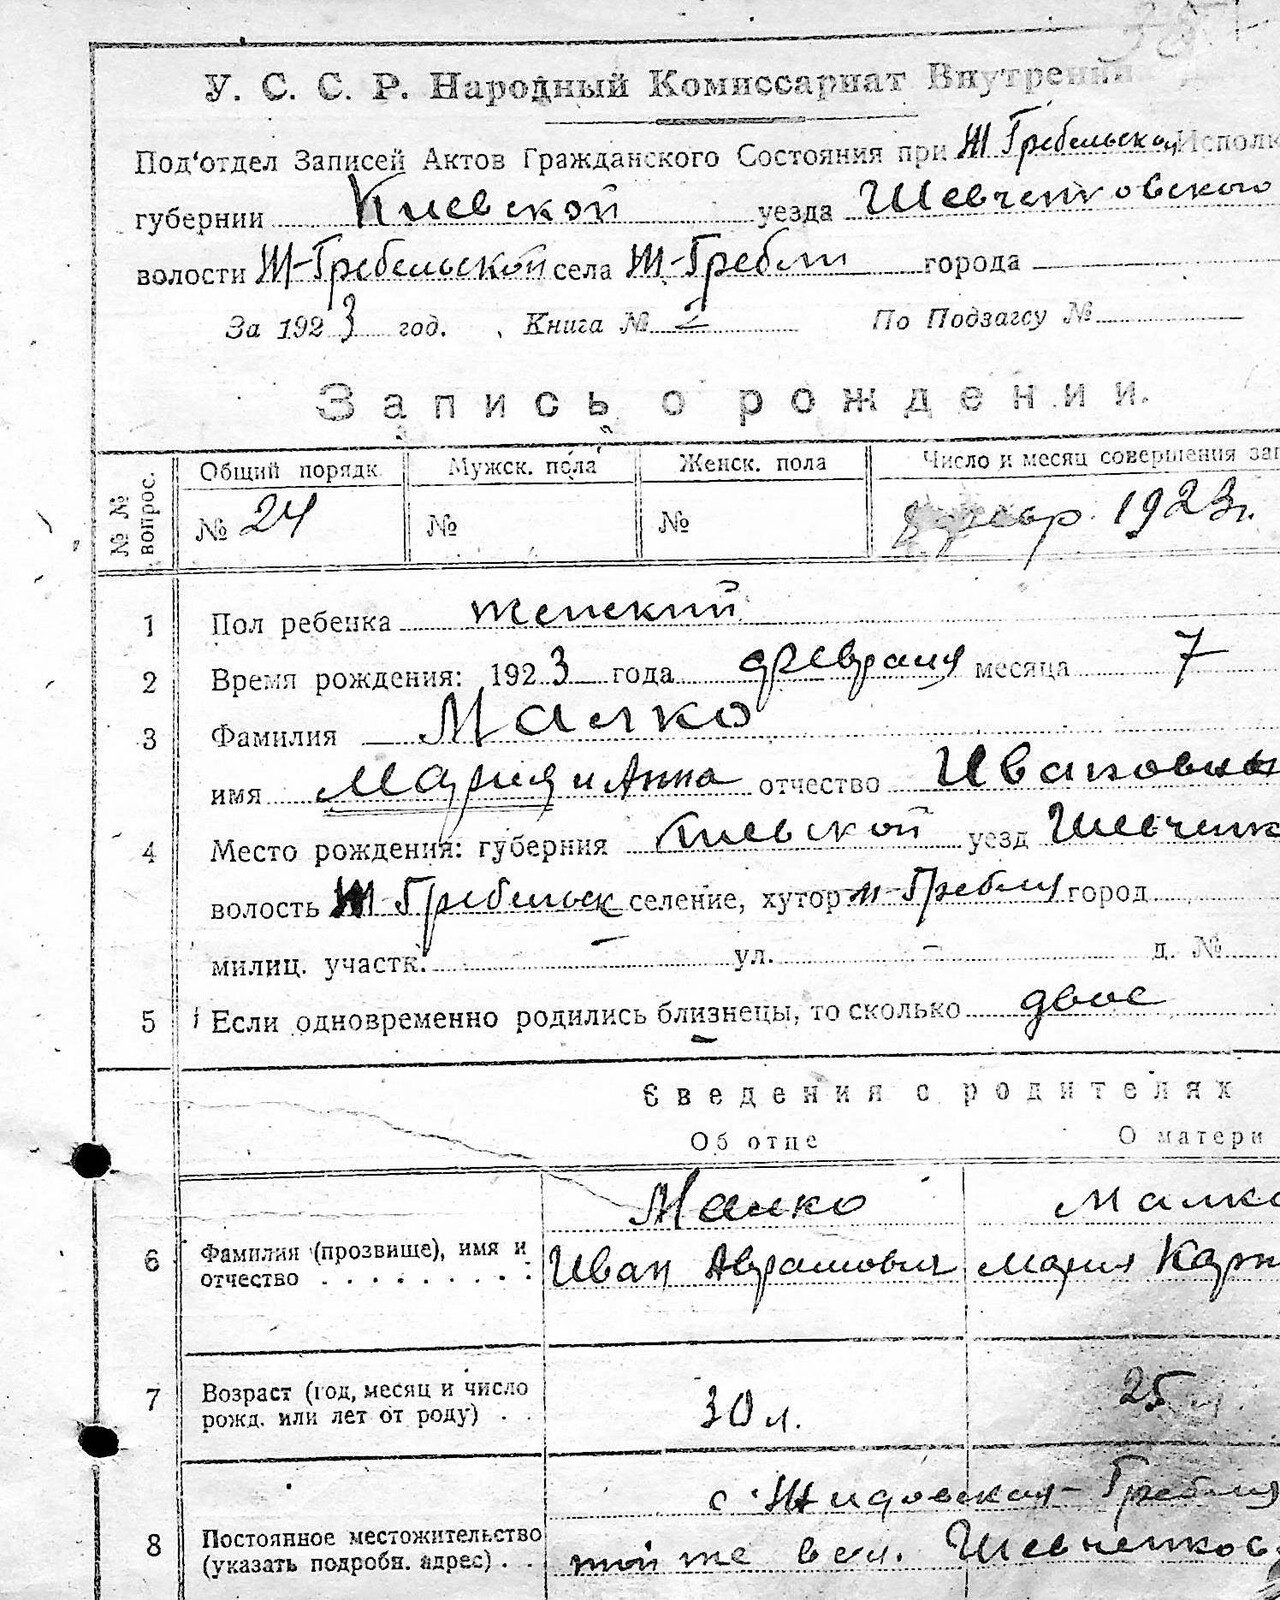 У. С. С. Р. Народный Комиссариат Внутренни
Под‘отдел Записей Актов Гражданского Состояния при Ж Гребельском Исполк
губернии Киевской уезда Шевченковского
волости Ж-Гребельской села Ж-Гребли города
За 1923 год. Книга № 2 По Подзагсу №
Запись о рождении.
№ № вопрос.
Общий порядк. Мужск. пола Женск. пола Число и месяц совершения зап
№ 24 № № февр. 1923г.
1 Пол ребенка женский
2 Время рождения: 1923 года февраля месяца 7
3 Фамилия Малко
имя Мария и Анна отчество Ивановны
4 Место рождения: губерния Киевской уезд Шевченк
волость Ж Гребельск селение, хутор Ж-Гребля город
милиц. участк. – ул. – д. №
5 Если одновременно родились близнецы, то сколько двое
Сведения о родителях
Об отце О матери
Малко Малко
6 Фамилия (прозвище), имя и Иван Аврамович Мария Карп
отчество
7 Возраст (год, месяц и число 30 л. 25 л.
рожд. или лет от роду)
с. Жидовская-Гребля
8 Постоянное местожительство той же вол. Шевченков
(указать подробн. адрес)